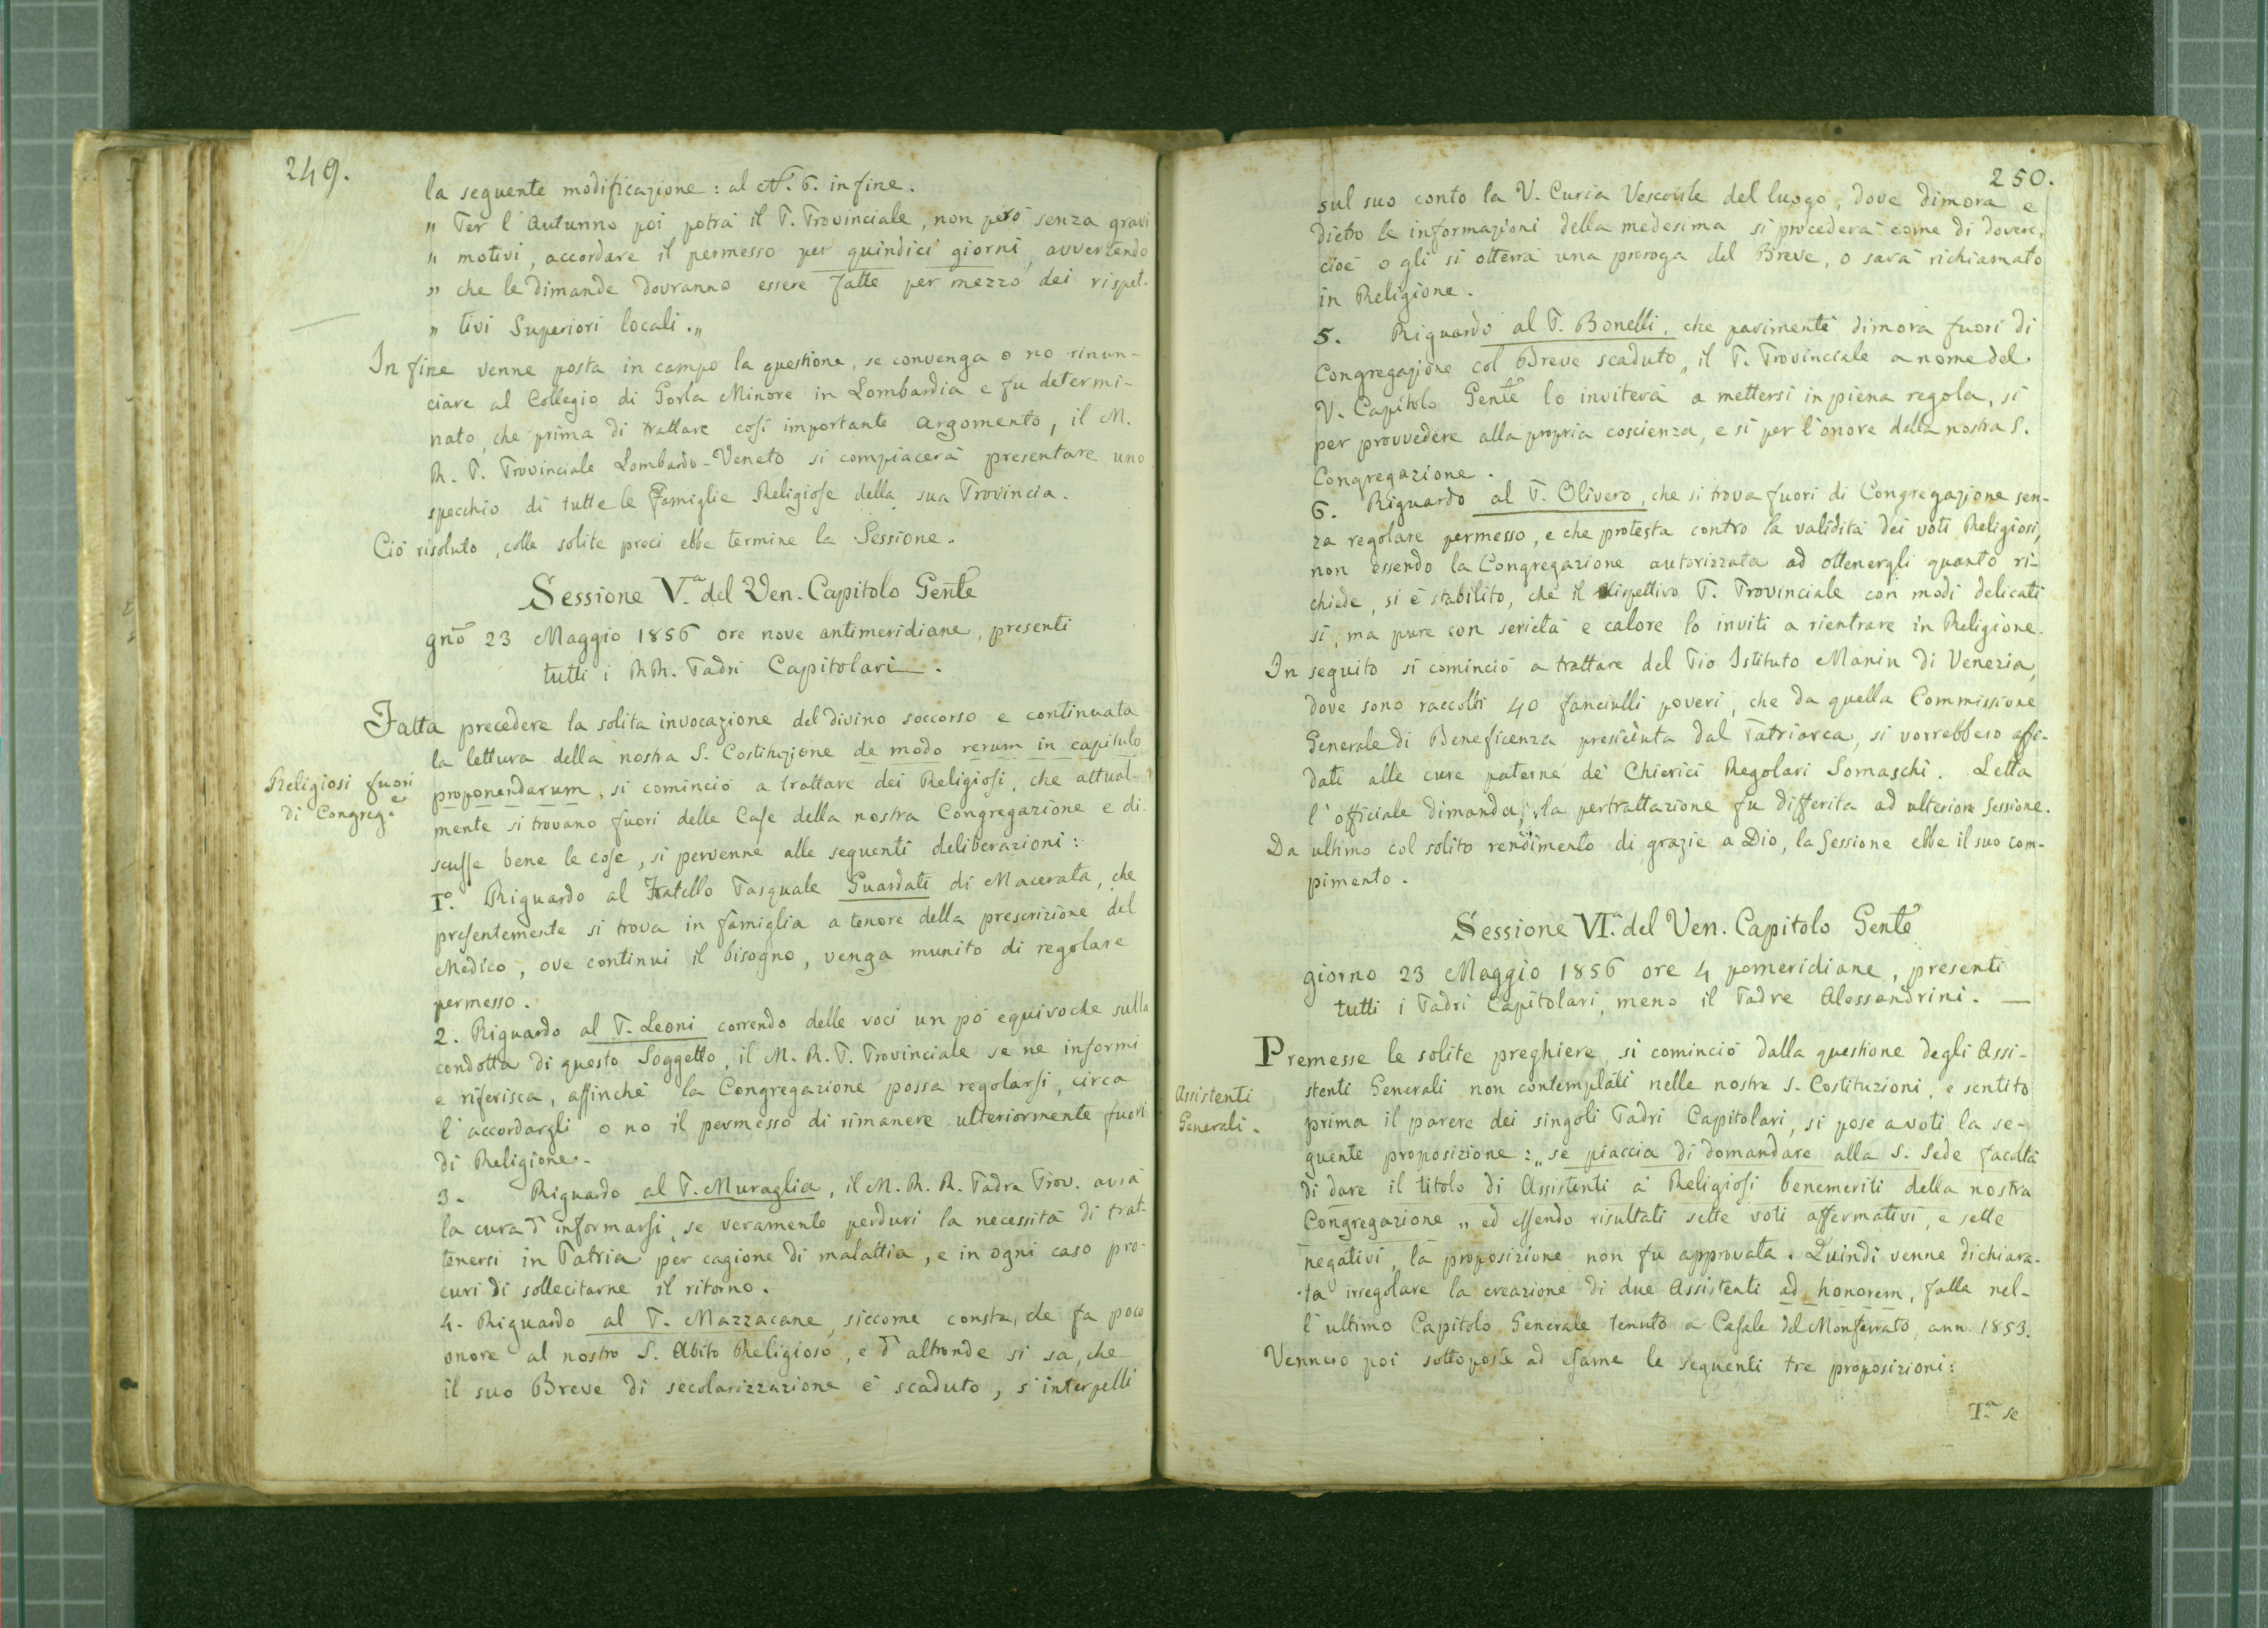 249.
la seguente modificazione: al N. 6. in fine.
„ Per l'Autunno poi potrà il P. Provinciale, non però senza gravi
„ motivi, accordare il permesso per quindici giorni, avvertendo
„ che le dimande dovranno essere fatte per mezzo dei rispet-
„ tivi Superiori locali.„
In fine venne posta in campo la questione, se convenga o no rinun-
ciare al Collegio di Gorla Minore in Lombardia e fu determi-
nato, che prima di trattare così importante argomento, il M.
R. P. Provinciale Lombardo-Veneto si compiacerà presentare uno
specchio di tutte le Famiglie Religiose della sua Provincia.
Ciò risoluto, colle solite preci ebbe termine la Sessione.
Sessione V.ª del Ven. Capitolo Genle
gno 23 Maggio 1856 ore nove antimeridiane, presenti
tutti i RR. Padri Capitolari.
Fatta precedere la solita invocazione del divino soccorso e continuata
la lettura della nostra S. Costituzione de modo rerum in capitulo
Religiosi fuori
di Congreg.e
proponendarum, si cominciò a trattare dei Religiosi, che attual-
mente si trovano fuori delle Case della nostra Congregazione e di-
scusse bene le cose, si pervenne alle seguenti deliberazioni:
I.° Riguardo al Fratello Pasquale Guardati di Macerata, che
presentemente si trova in famiglia a tenore della prescrizione del
Medico, ove continui il bisogno, venga munito di regolare
permesso.
2. Riguardo al P. Leoni correndo delle voci un pò equivoche sulla
condotta di questo Soggetto, il M. R. P. Provinciale se ne informi
e riferisca, affinchè la Congregazione possa regolarsi, circa
l'accordargli o no il permesso di rimanere ulteriormente fuori
di Religione.
3. Riguardo al P. Muraglia, il M. R. R. Padre Prov. avrà
la cura d'informarsi, se veramente perduri la necessità di trat-
tenersi in Patria per cagione di malattia, e in ogni caso pro-
curi di sollecitarne il ritorno.
4. Riguardo al P. Mazzacane, siccome consta, che fa poco
onore al nostro S. Abito Religioso, e d'altronde si sa, che
il suo Breve di secolarizzazione è scaduto, s'interpelli
250.
sul suo conto la V. Curia Vescovile del luogo, dove dimora e
dietro le informazioni della medesima si procederà come di dovere,
cioè o gli si otterrà una proroga del Breve, o sarà richiamato
in Religione.
5. Riguardo al P. Bonelli, che parimenti dimora fuori di
Congregazione col Breve scaduto, il P. Provinciale a nome del
V. Capitolo Genle lo inviterà a mettersi in piena regola, sì
per provvedere alla propria coscienza, e sì per l'onore della nostra S.
Congregazione.
6. Riguardo al P. Olivero, che si trova fuori di Congregazione sen-
za regolare permesso, e che protesta contro la validità dei voti Religiosi,
non essendo la Congregazione autorizzata ad ottenergli quanto ri-
chiede, si è stabilito, che il rispettivo P. Provinciale con modi delicati
sì, ma pure con serietà e calore lo inviti a rientrare in Religione.
In seguito si cominciò a trattare del Pio Istituto Manin di Venezia,
dove sono raccolti 40 fanciulli poveri, che da quella Commissione
Generale di Beneficenza presieduta dal Patriarca, si vorrebbero affi-
dati alle cure paterne de' Chierici Regolari Somaschi. Letta
l'officiale dimanda, la pertrattazione fu differita ad ulteriore Sessione.
Da ultimo col solito rendimento di grazie a Dio, la Sessione ebbe il suo com-
pimento.
Sessione VI.ª del Ven. Capitolo Genle
giorno 23 Maggio 1856 ore 4 pomeridiane, presenti
tutti i Padri Capitolari, meno il Padre Alessandrini. —
Premesse le solite preghiere, si cominciò dalla questione degli Assi-
Assistenti
Generali.
stenti Generali non contemplati nelle nostre S. Costituzioni, e sentito
prima il parere dei singoli Padri Capitolari, si pose a voti la se-
guente proposizione: „se piaccia di domandare alla S. Sede facoltà
di dare il titolo di Assistenti ai Religiosi benemeriti della nostra
Congregazione „ ed essendo risultati sette voti affermativi, e sette
negativi, la proposizione non fu approvata. Quindi venne dichiara-
ta irregolare la creazione di due Assistenti ad honorem, fatta nel-
l'ultimo Capitolo Generale tenuto a Casale del Monferrato, ann. 1853.
Vennero poi sottoposte ad esame le seguenti tre proposizioni:
I.ª se